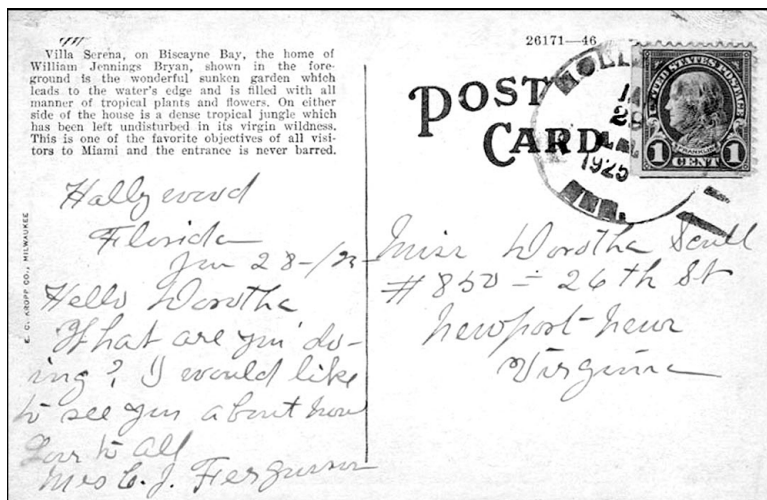 Villa Serena, on Biscayne Bay, the home of
William Jennings Bryan, shown in the fore-
ground is the wonderful sunken garden which
leads to the water's edge and is filled with all
manner of tropical plants and flowers. On either
side of the house is a dense tropical jungle which
has been left undisturbed in its virgin wildness.
This is one of the favorite objectives of all visi-
tors to Miami and the entrance is never barred.
E. C. KROPP CO., MILWAUKEE
Hollywood
Florida
Jan 28-/25
Hello Dorotha
What are you do-
ing? I would like
to see you about now
Love to all
Mrs C. J. Ferguson
26171—46
POST
CARD
28
1925
UNITED STATES POSTAGE
FRANKLIN
1 CENT 1
Miss Dorotha Scull
# 850 = 26th St
Newport-News
Virginia